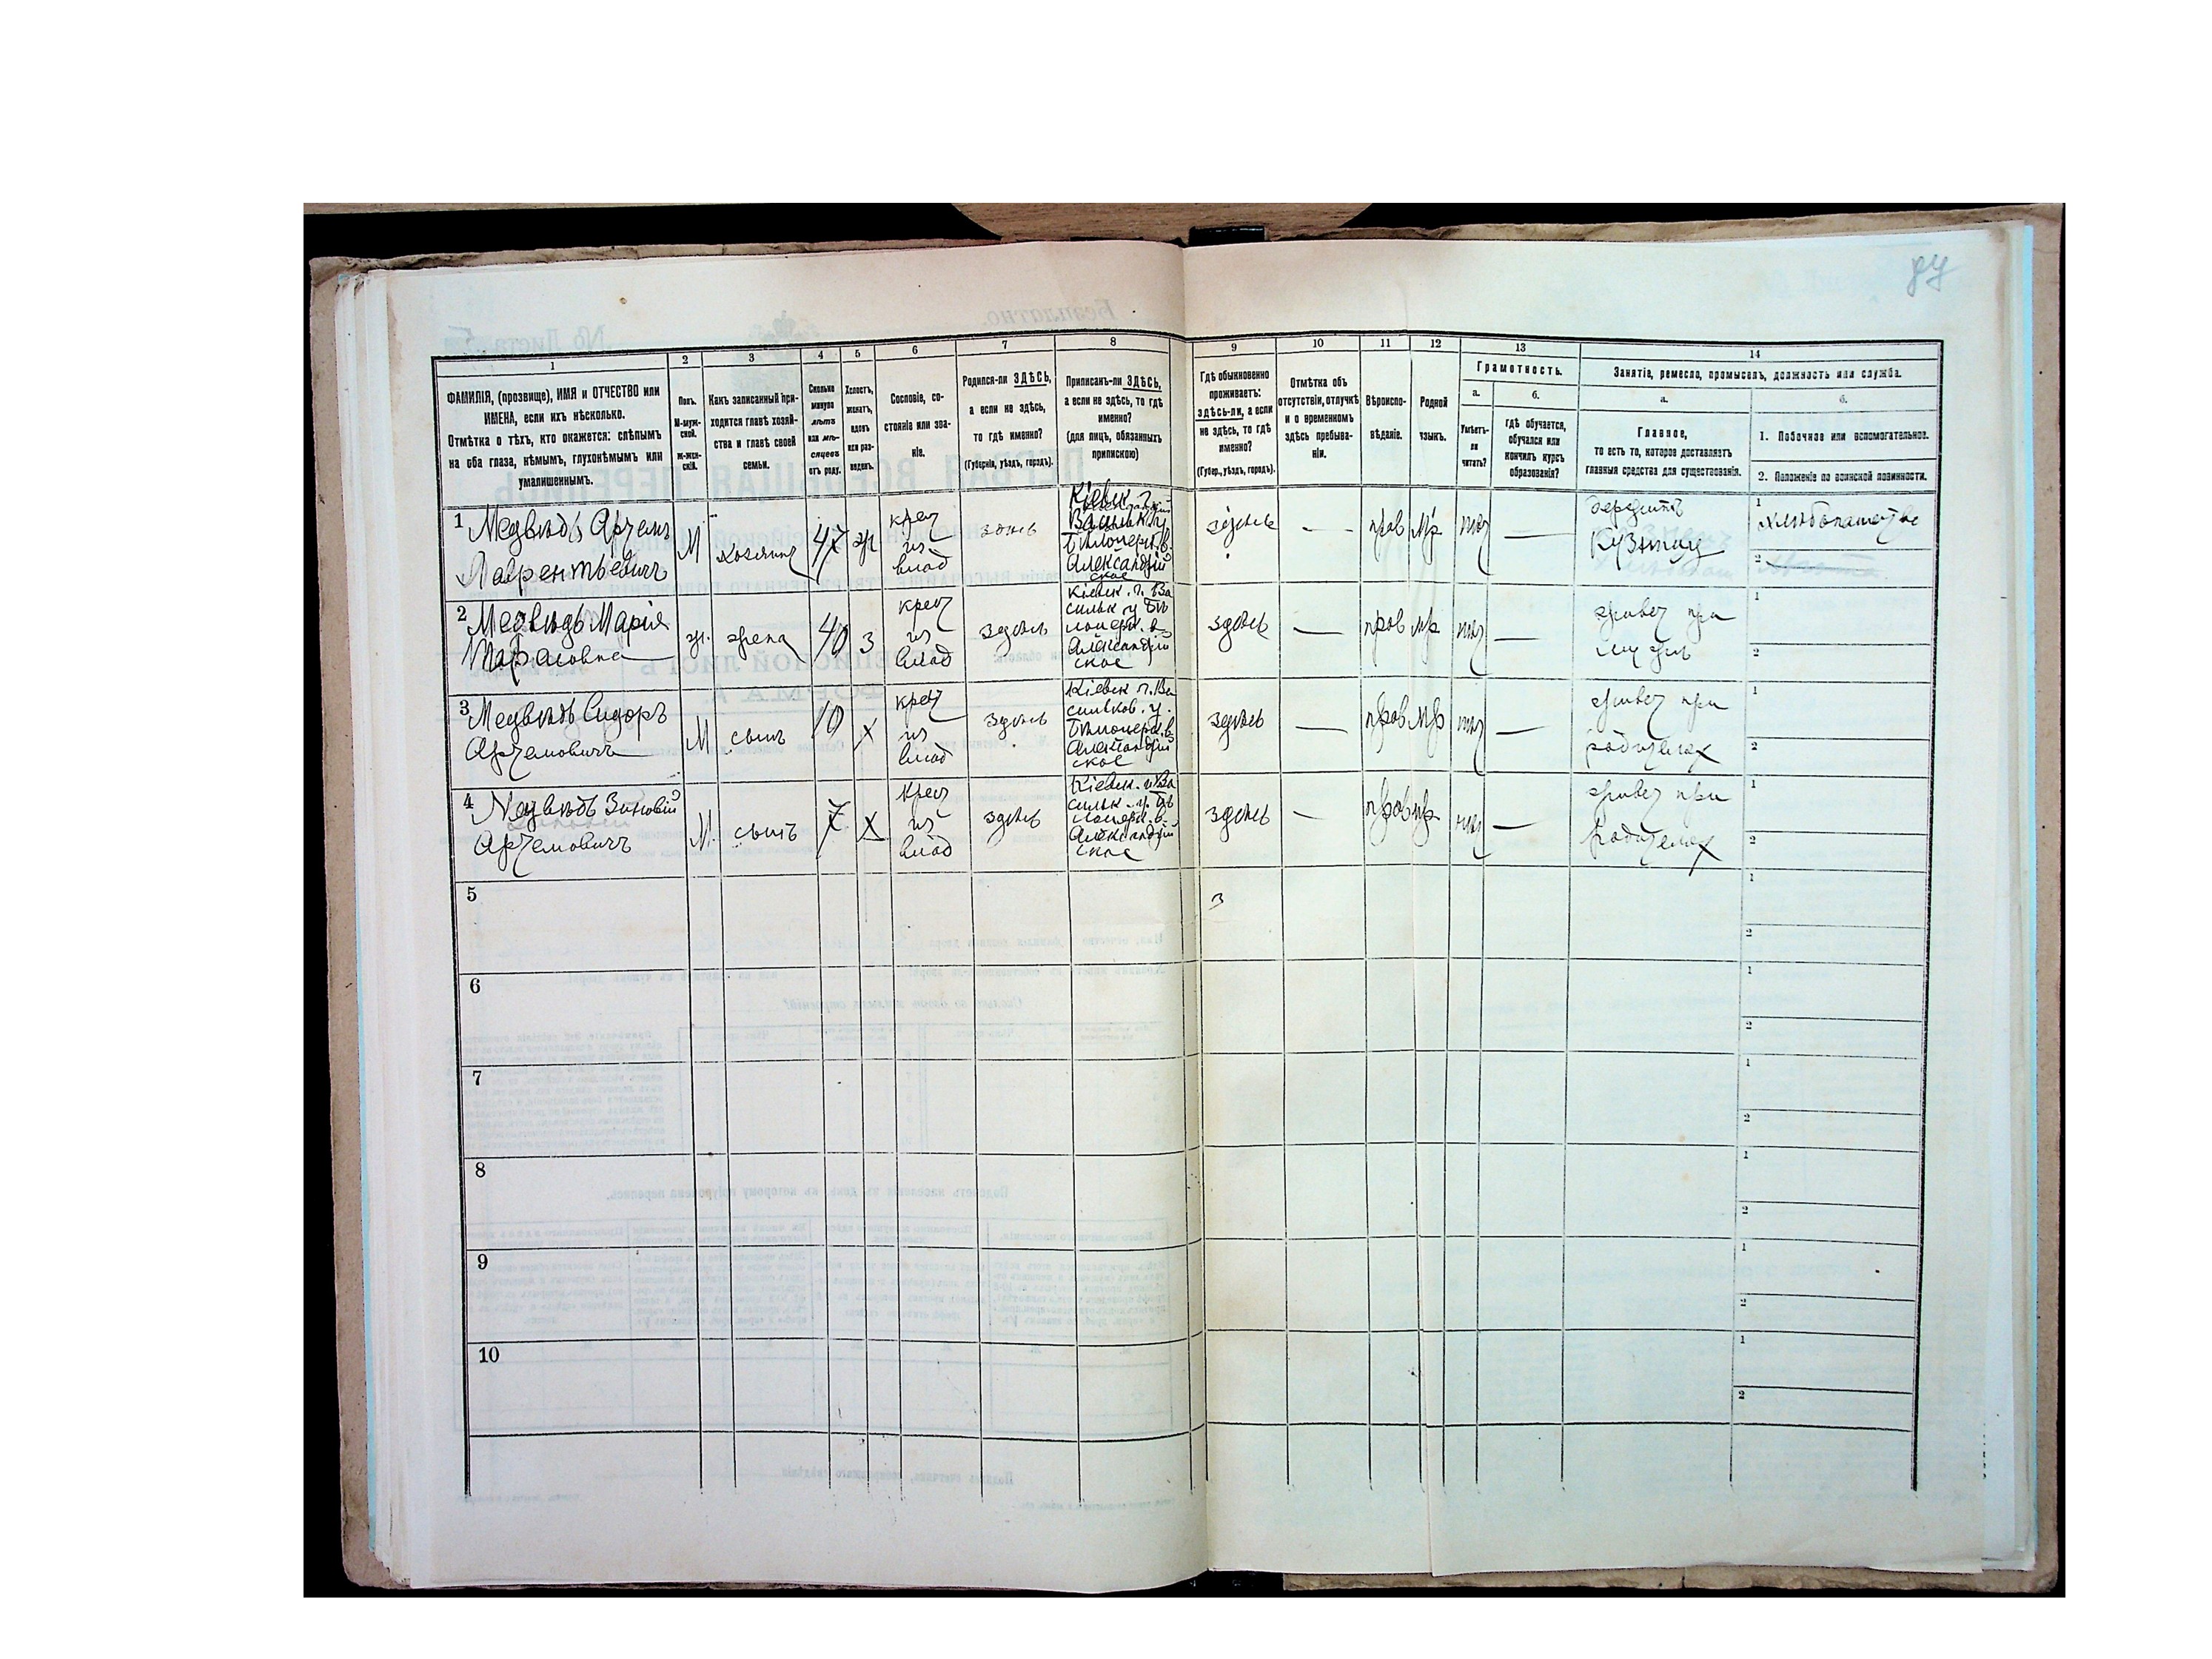 87
1 2 3 4 5 6 7 8 9 10 11 12 13 14
ФАМИЛІЯ, (прозвище), ИМЯ и ОТЧЕСТВО или
ИМЕНА, если ихъ нѣсколько.
Отмѣтка о тѣхъ, кто окажется: слѣпымъ
на оба глаза, нѣмымъ, глухонѣмымъ или
умалишеннымъ.
Полъ.
М-муж-
ской.
ж-жен-
скій.
Какъ записанный при-
ходится главѣ хозяй-
ства и главѣ своей
семьи.
Сколько
минуло
лѣтъ
или мѣ-
сяцевъ
отъ роду.
Холостъ,
женатъ,
вдовъ
или раз-
веденъ.
Сословіе, со-
стояніе или зва-
ніе.
Родился-ли ЗДѢСЬ,
а если не здѣсь,
то гдѣ именно?
(Губернія, уѣздъ, городъ).
Приписанъ-ли ЗДѢСЬ,
а если не здѣсь, то гдѣ
именно?
(для лицъ, обязанныхъ
припискою)
Гдѣ обыкновенно
проживаетъ:
здѣсь-ли, а если
не здѣсь, то гдѣ
именно?
(Губер., уѣздъ, городъ).
Отмѣтка объ
отсутствіи, отлучкѣ
и о временномъ
здѣсь пребыва-
ніи.
Вѣроиспо-
вѣданіе.
Родной
языкъ.
Грамотность.
а.
Умѣетъ-
ли
читать?
б.
гдѣ обучается,
обучался или
кончилъ курсъ
образованія?
Занятіе, ремесло, промыселъ, должность или служба.
а.
Главное,
то есть то, которое доставляетъ
главныя средства для существованія.
б.
1. Побочное или вспомогательное.
2. Положеніе по воинской повинности.
1 Медвѣдь Артемъ
Лаврентьевичъ
М
хозяинъ
47
ж
крест
из
влад
здѣсь
Кіевск. г.
Васильк. у.
Бѣлоцерк. в.
Александрій
ское
здѣсь
—
прав
Мр
нѣт
—
Кузнец
1 хлѣбопашество
2
2 Медвѣдь Марія
Тарасовна
ж.
жена
40
з
крест
из
влад
здѣсь
Кіевск. г. Ва
сильк у Бѣ
лоцерк. в
Александрій
ское
здѣсь
—
прав
мр
нѣт
—
живет при
мужѣ
1
2
3 Медвѣдь Сидоръ
Артемовичъ
М
сынъ
10
х
крест
из
влад
здѣсь
Кіевск г. Ва
сильков. у.
Бѣлоцерк. в
Александрій
ское
здѣсь
—
прав
Мр
нѣт
—
живет при
родителях
1
2
4 Медвѣдь Зиновій
Артемовичъ
М.
сынъ
7
х
крест
из
влад
здѣсь
Кіевск. г. Ва
сильк. у. Бѣ
лоцерк. в.
Александрій
ское
здѣсь
—
прав
мр
нѣт
—
живет при
родителях
1
2
5
з
1
2
6
1
2
7
1
2
8
1
2
9
1
2
10
1
2